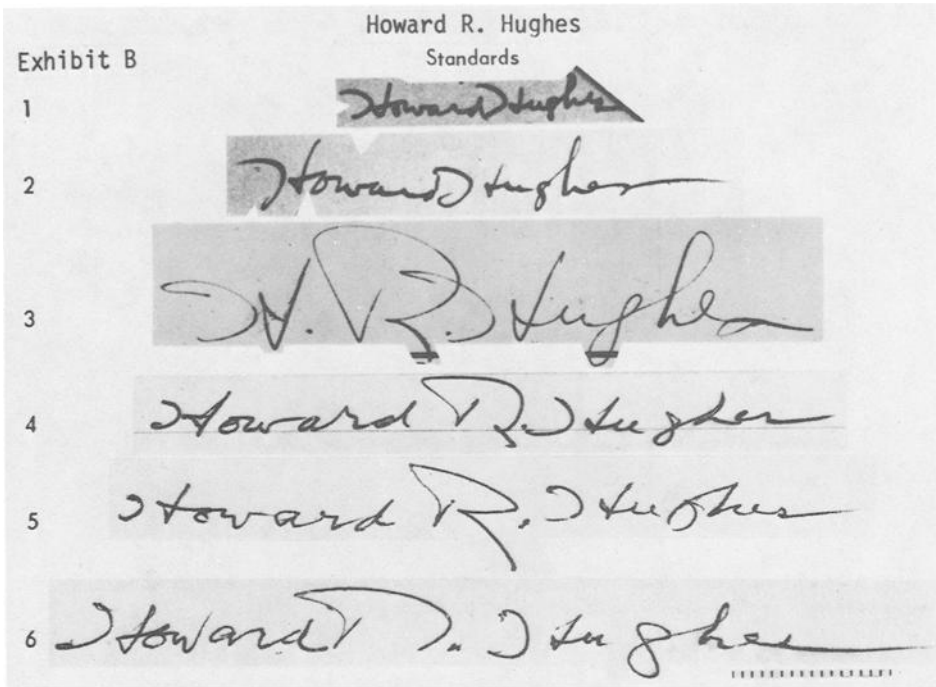 Howard R. Hughes
Exhibit B
Standards
1 Howard Hughes
2 Howard Hughes
3 H. R. Hughes
4 Howard R. Hughes
5 Howard R. Hughes
6 Howard R. Hughes